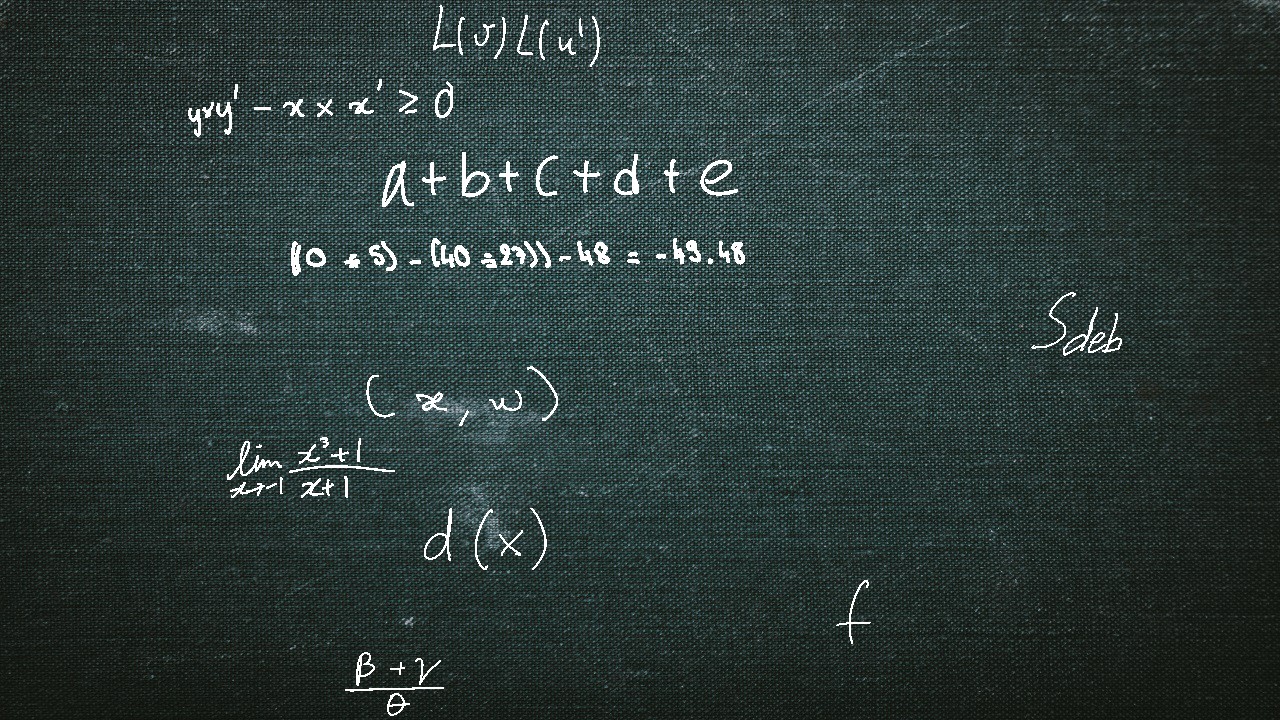 L(v)L(u')
y×y' − x × x' ≥ 0
a+b+c+d+e
((0 ÷ 5) - (40 ÷ 27)) - 48 = -49.48
S_deb
(x, w)
lim_{x→-1} \frac{x^3+1}{x+1}
d(x)
f
\frac{β+γ}{θ}